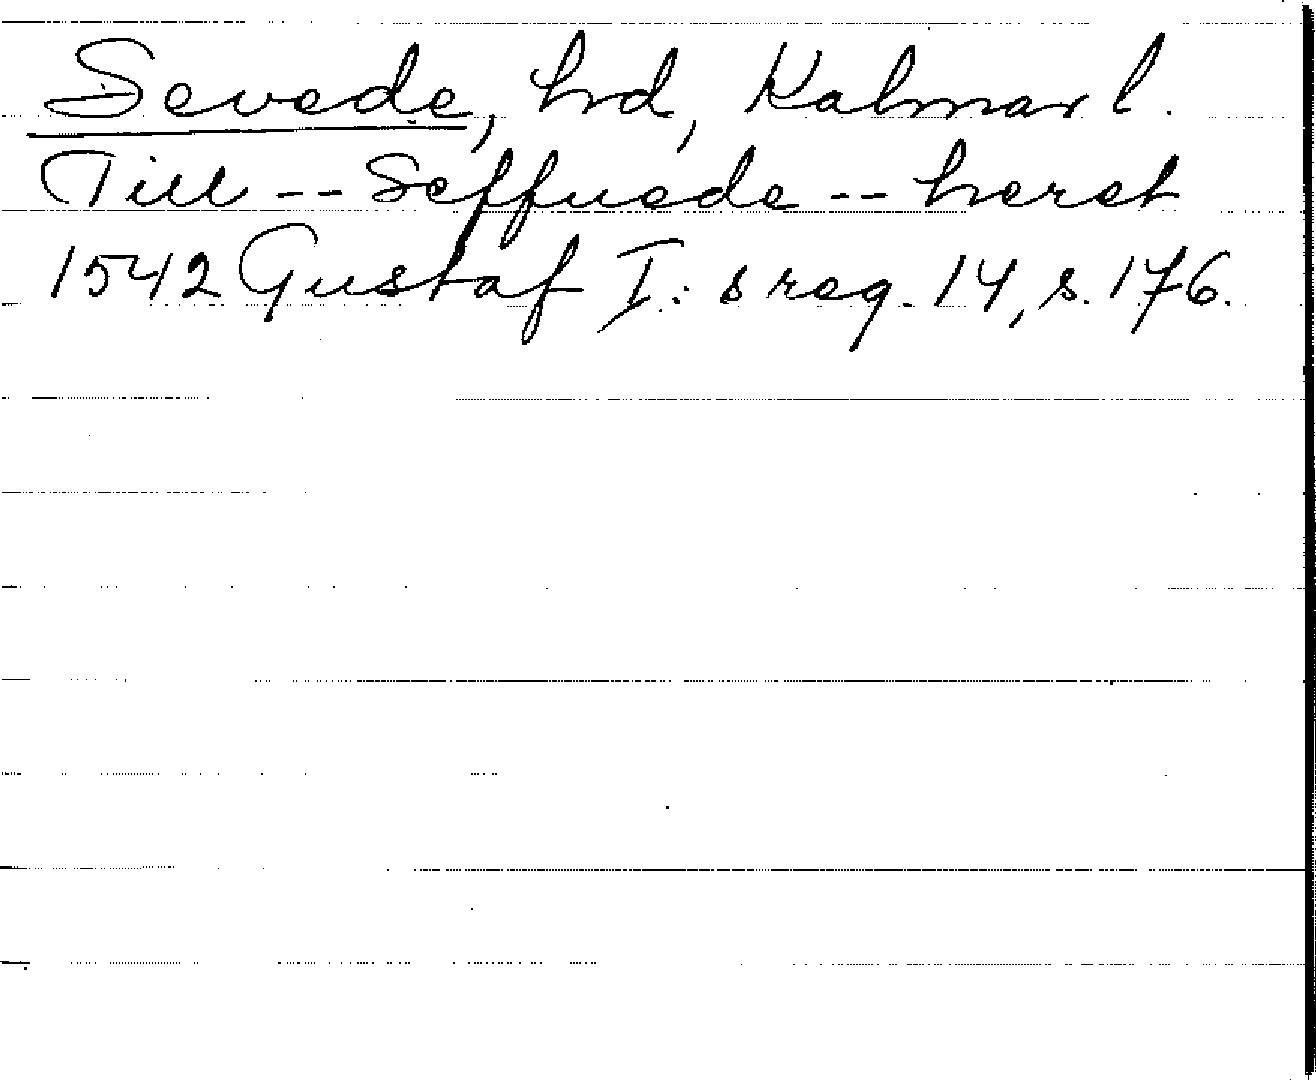 Sevede, hd, Kalmar l.
Till -- Seffuede -- heret
1542 Gustaf I:s reg. 14, s. 176.